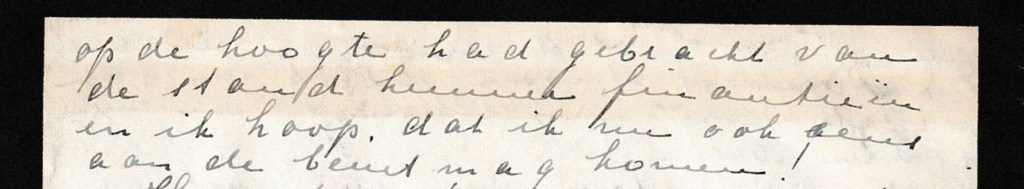 op de hoogte had gebracht van
de stand hunner finantieïn
en ik hoop, dat ik nu ook eens
aan de beurt mag komen!